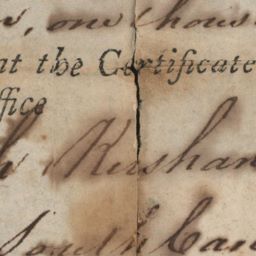 , one thous
at the Certificate
ffice
h Kershaw
South Car